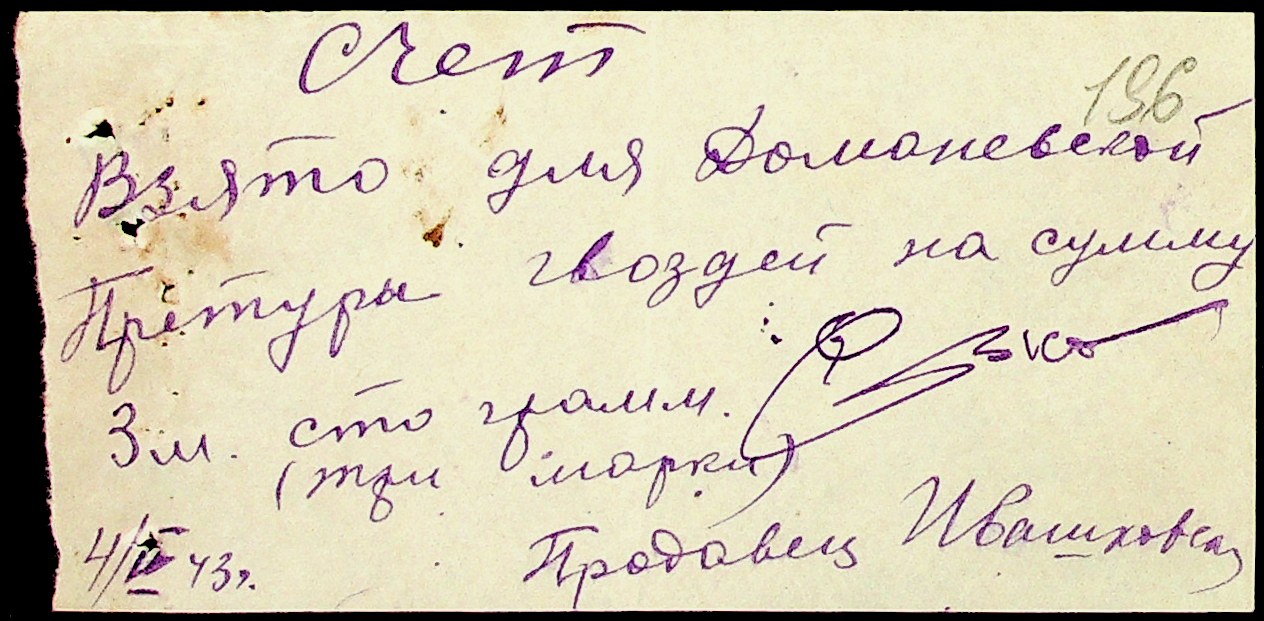 Счет
196
Взято для Доманевской
Претуры гвоздей на сумму
3 м. сто грамм.
(три марки)
4/ 43 г. Продавец